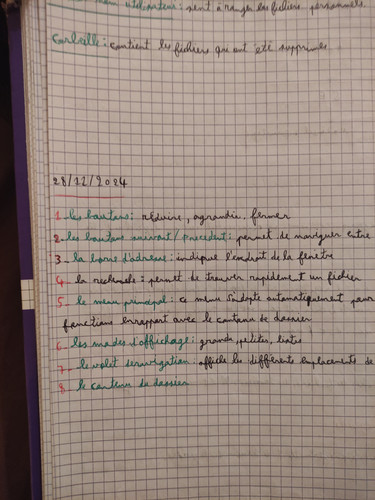 utilisateur: sert à ranger les fichiers personnels
Corbeille: contient les fichiers que ont été supprimés
28/12/2024
1_ les boutons: réduire, agrandir. fermer
2_ les boutons suivant/précédent: permet de naviguer entre
3_ la barre d'adresse: indique l'endroit de la fenêtre
4_ la recherche: permet de trouver rapidement un fichier
5_ le menu principal: ce menu s'adapte automatiquement pour
fonctions en rapport avec le contenu de dossier
6_ les modes d'affichage: grands, petites, liste
7_ le volet de navigation: affiche les différents emplacements de
8_ le contenu de dossier